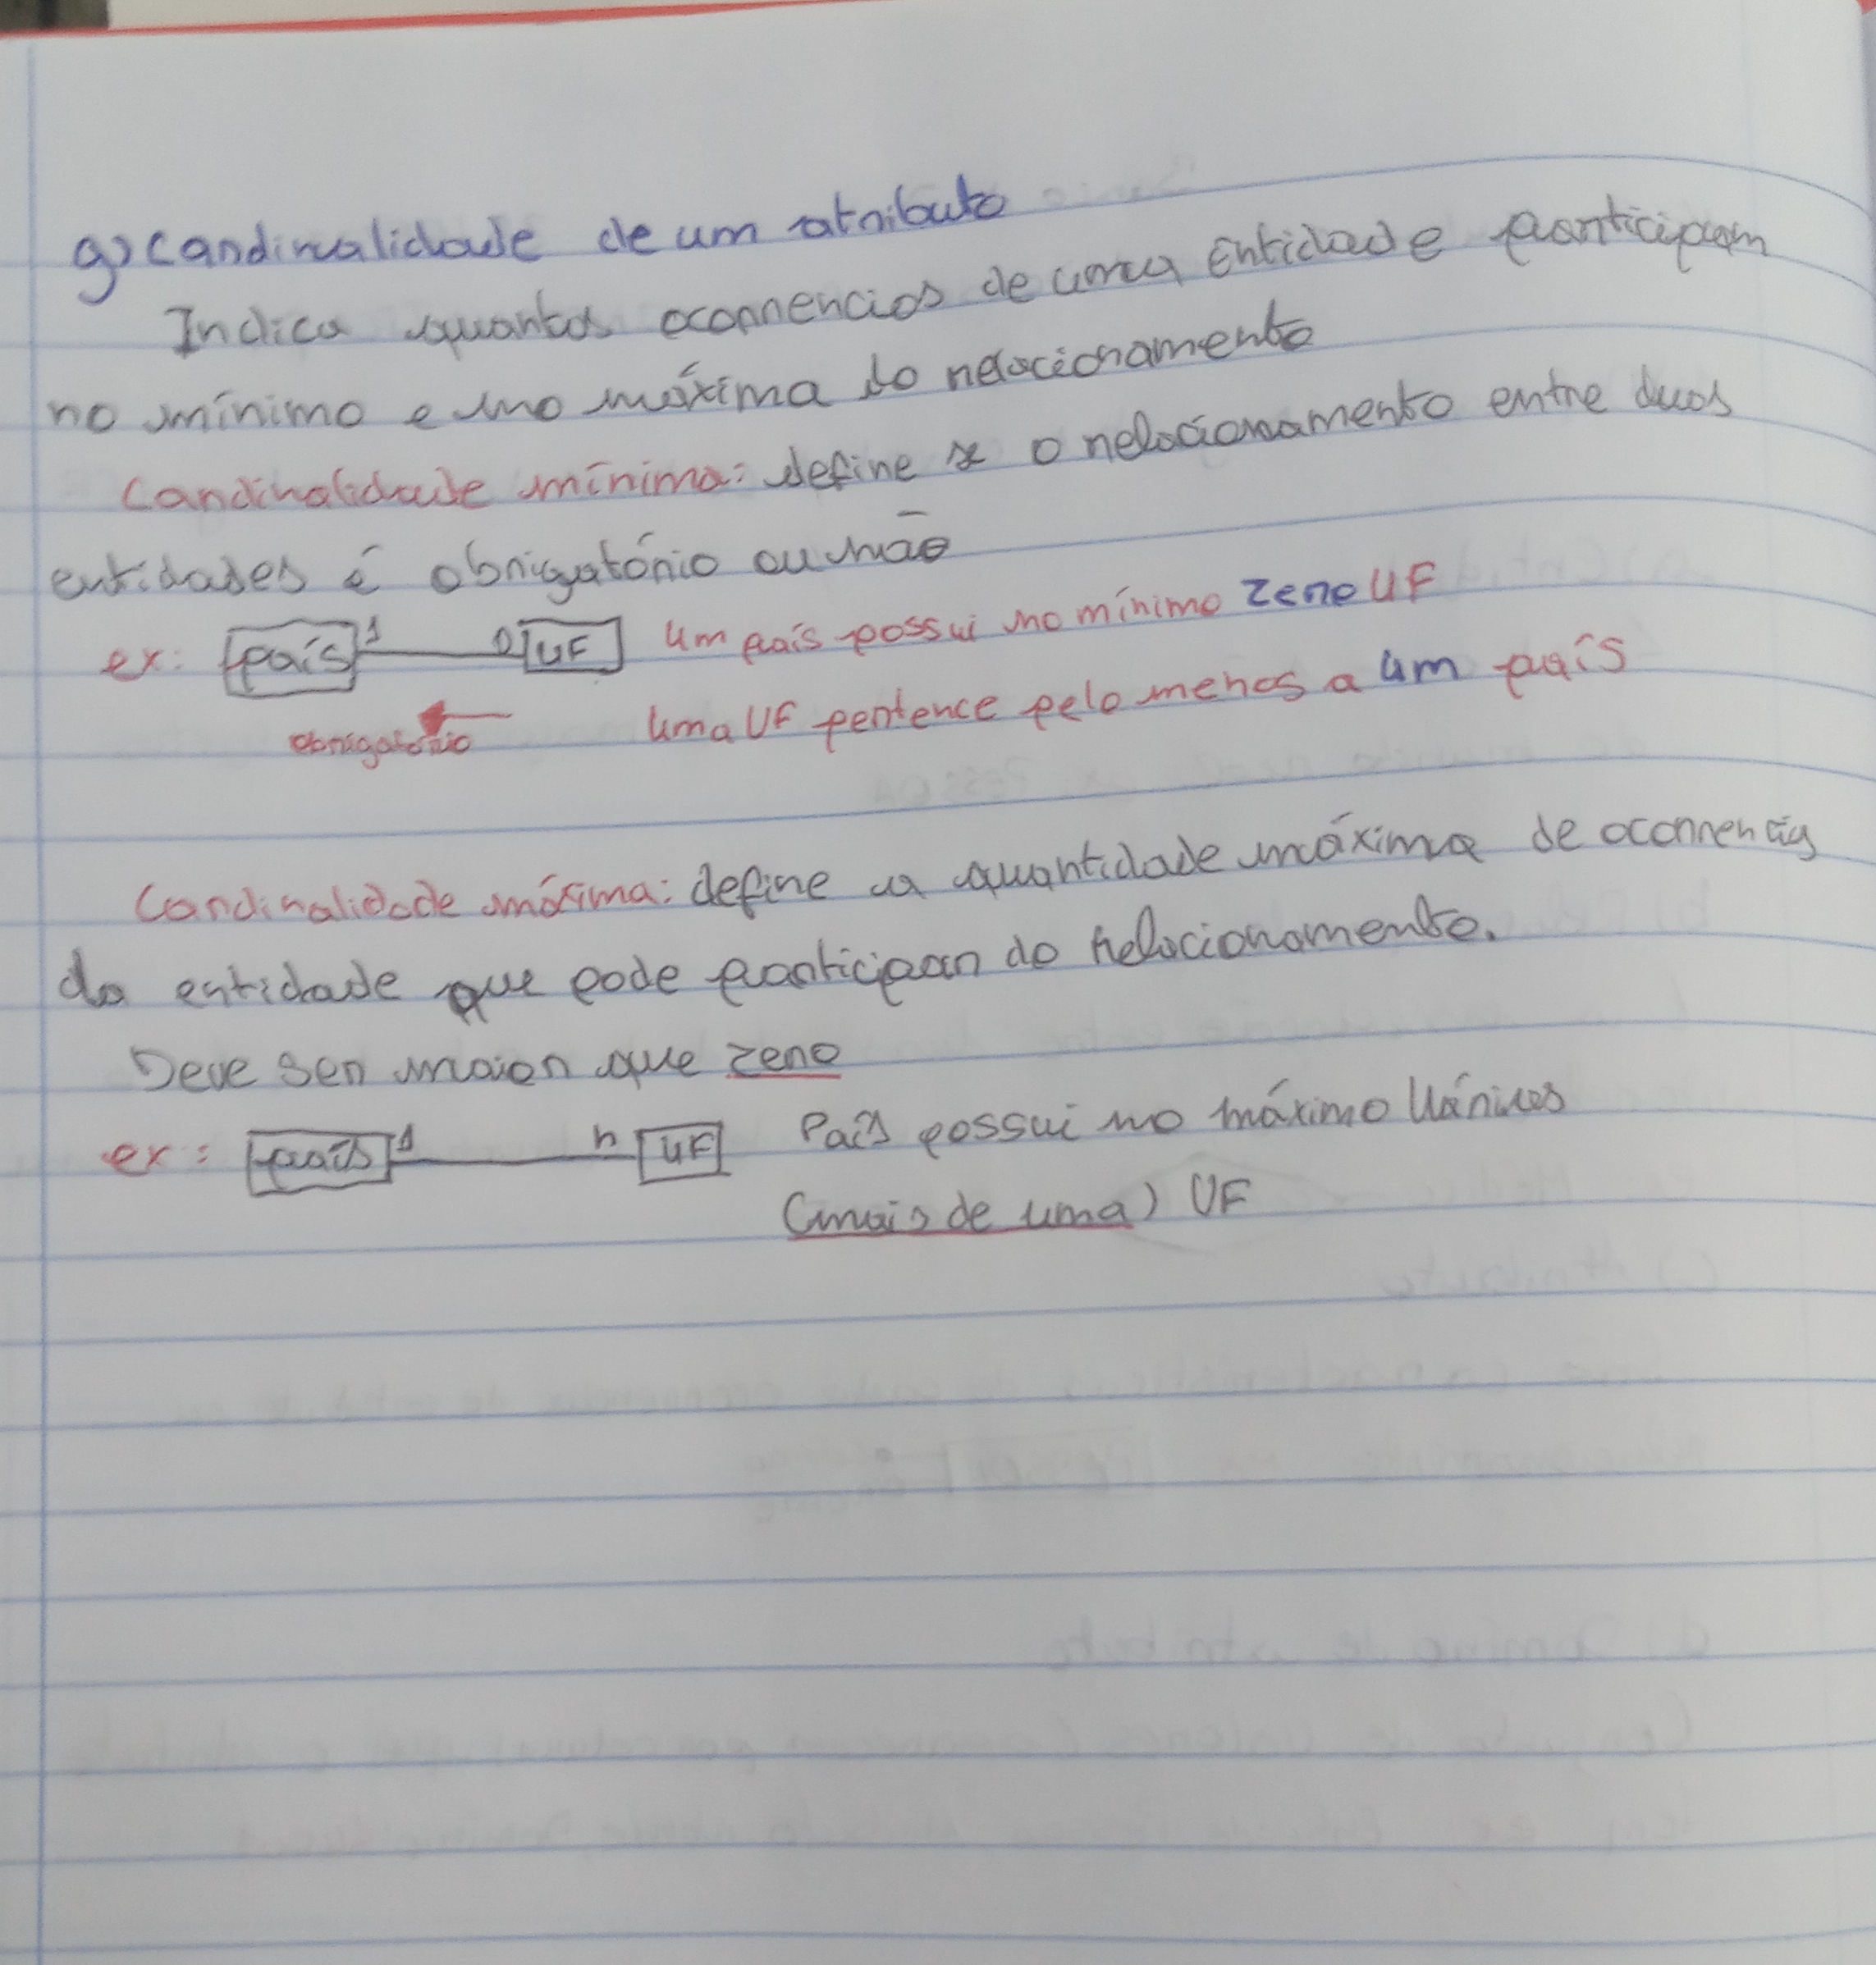 g) Cardinalidade de um atributo
Indica quantas ocorrencias de uma Entidade participam
no mínimo e no máxima do relacionamento
Cardinalidade mínima: define se o relacionamento entre duas
entidades é obrigatório ou não
ex: país 1 0 UF Um país possui no mínimo zero UF
obrigatório Uma UF pertence pelo menos a um país
Cardinalidade máxima: define a quantidade máxima de ocorrencias
da entidade que pode participar do relacionamento.
Deve ser maior que zero
ex: país 1 n UF País possui no máximo Várias
(mais de uma) UF